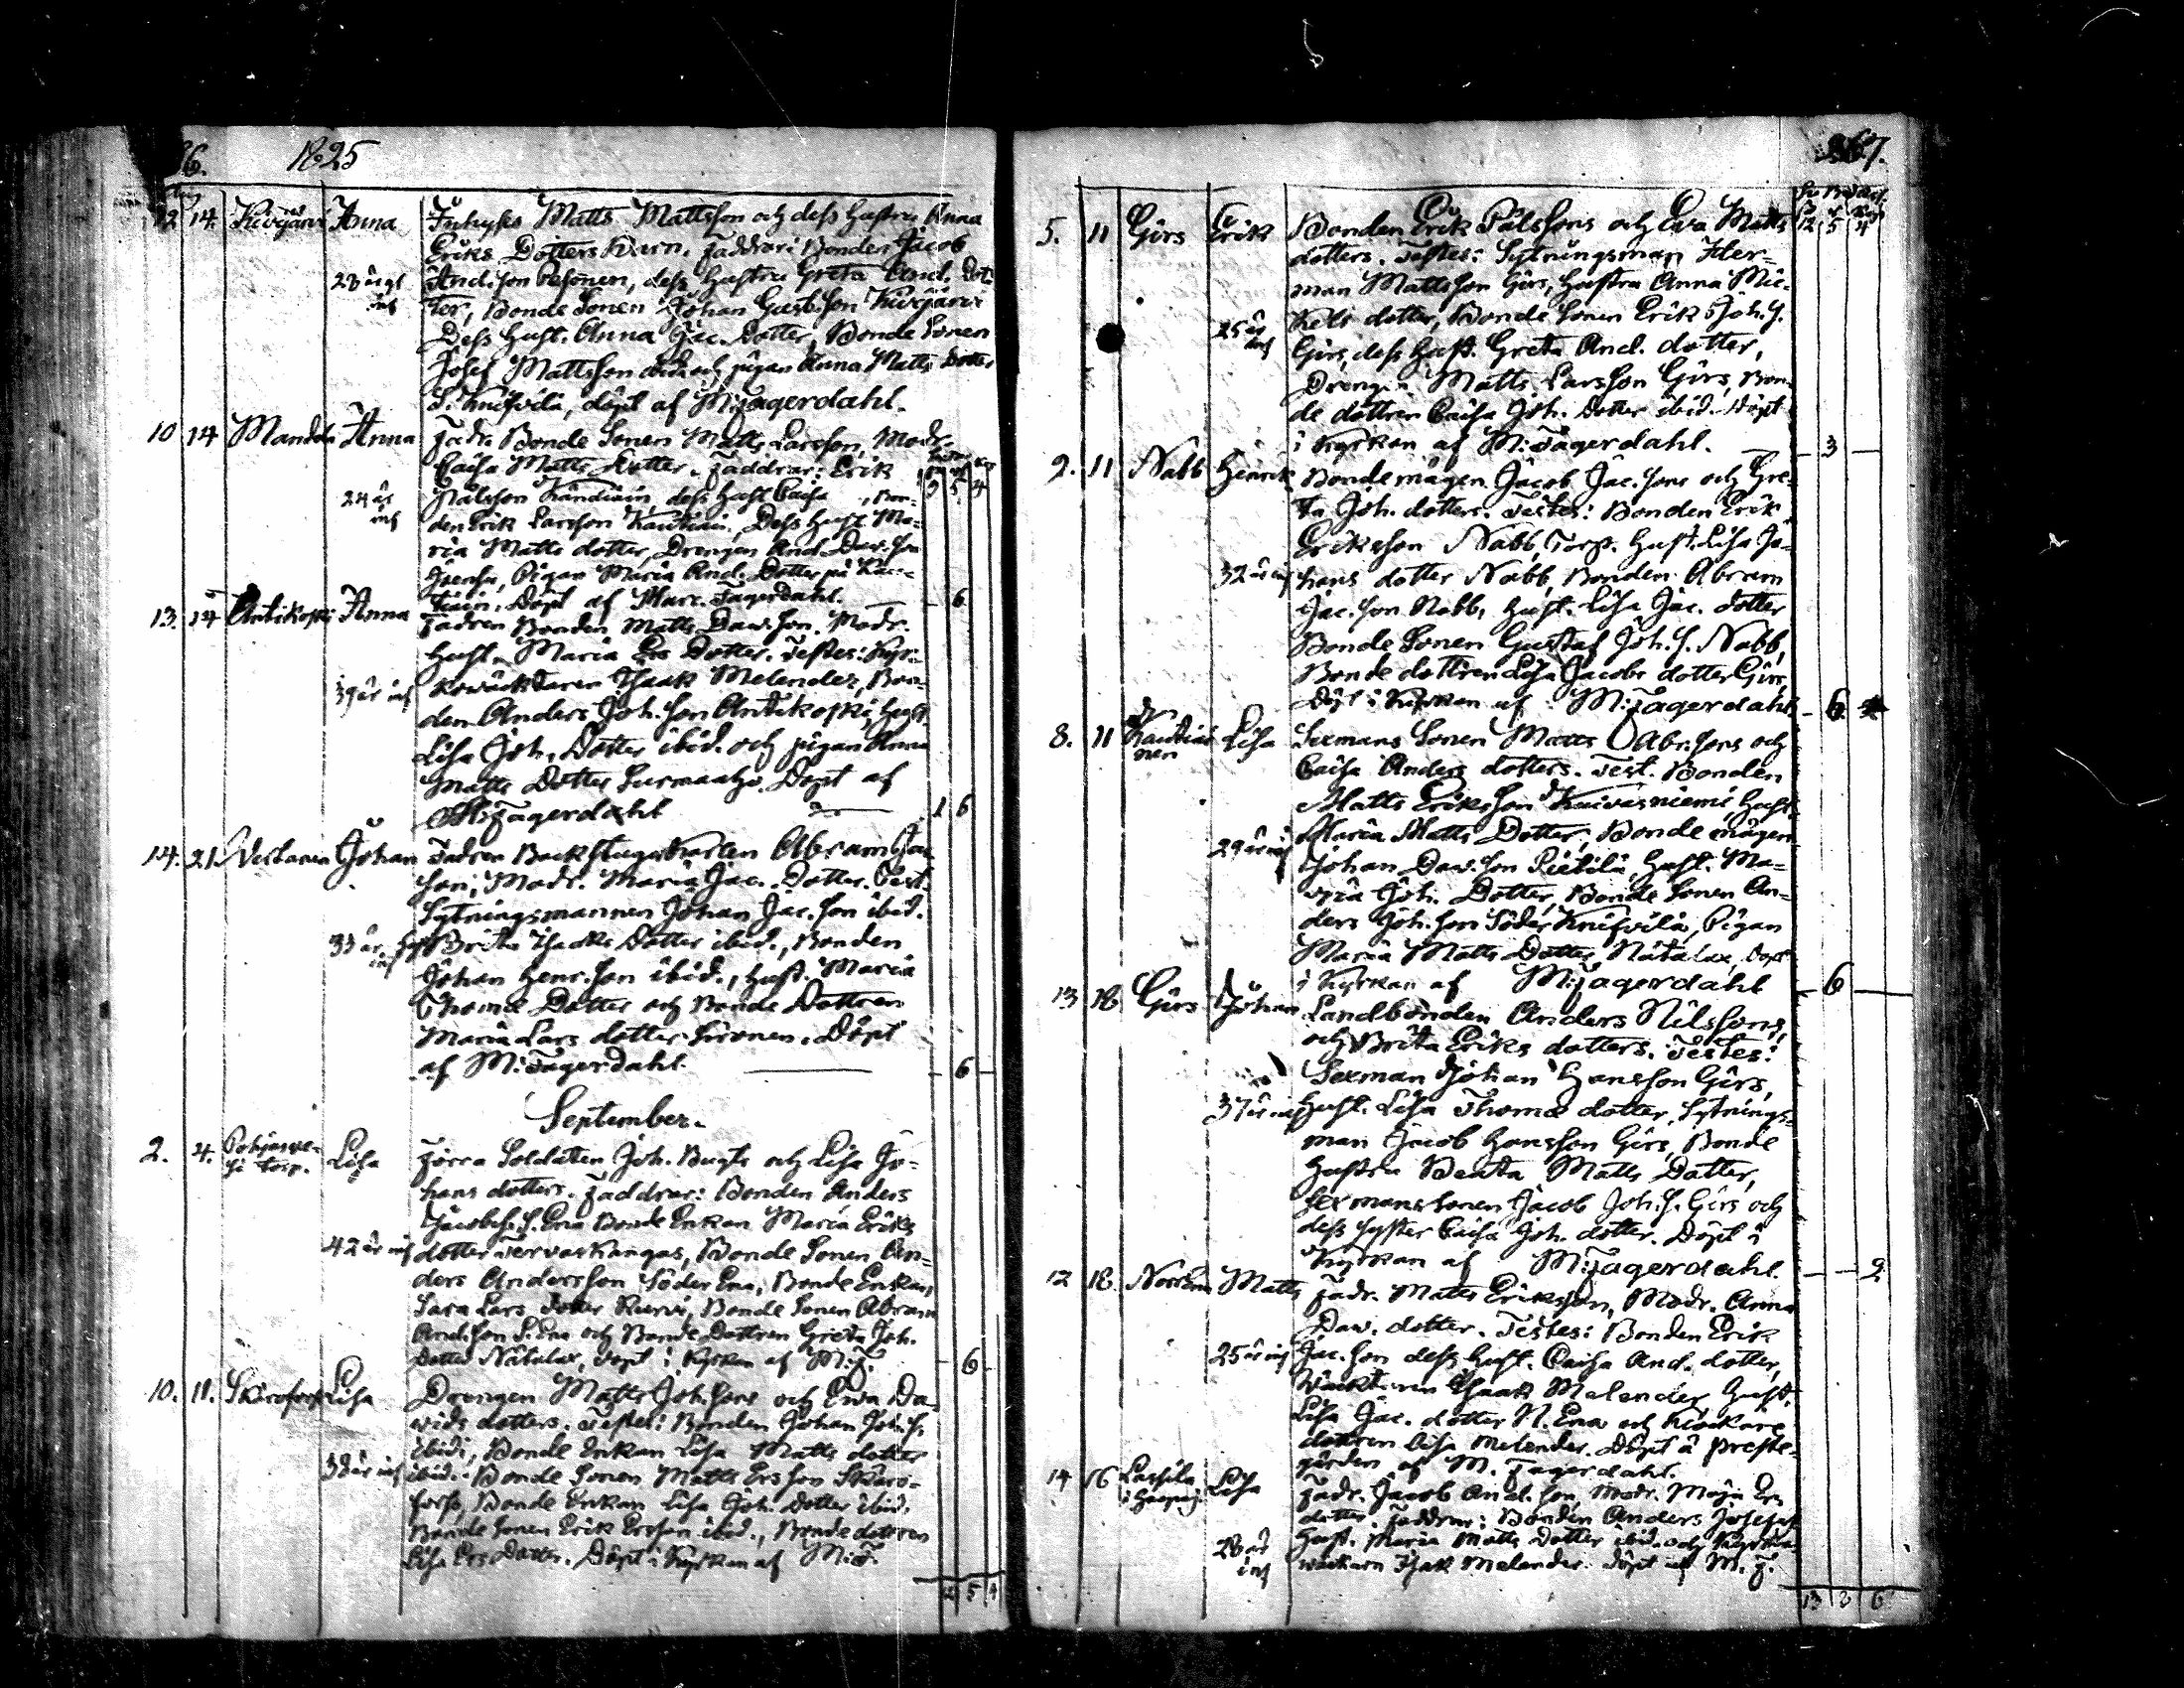 1825
12 14. Kivijärvi Anna Inhyses Matts Mattsson och dess hustru Anna
Eriks Dotters barn. Faddrar: Bonden Jacob
And.son Pesonen, dess hustru Greta And. Dot-
ter, Bonde Sonen Johan Gust.son Kivijärvi
Dess hust. Anna Jac. Dotter, Bonde Sonen
Josef Mattsson ibid. och pigan Anna Matts Dotter
S. Knifvilä, döpt af M: Fagerdahl.
10 14 Mandola Anna Fadr. Bonde Sonen Matts Larsson, Modr.
Caisa Matts Dotter. Faddrar: Erik
24 år Nilsson dess hust Caisa , Bon-
den Erik Larsson Kautiain, Dess hust Ma-
ria Matts dotter, Drengen And. Dav. son
Pigan Maria And. Dotter på Kau-
tiain. Döpt af Marc. Fagerdahl. 6
13. 14 Antikoski Anna Fadren Bonden Matts Dav.son. Modr.
hust. Maria Ers Dotter. Testes: Kyr-
39 år kowäcktaren Isaak Melender, Bon-
den Anders Joh.son Antikoski, hust.
Lisa Joh. Dotter ibid. och pigan Anna
Matts Dotter Surmaaho. Döpt af
M: Fagerdahl 1 6
14. 21. Johan Fadren Backstugukarlen Abram Jac.
son, Modr. Maria Jac. Dotter. Test.
Sytningsmannen Johan Jac.son ibid.
33 år Brita Isacks Dotter ibid., Bonden
Johan Henr.son ibid., hust. Maria
Thomæ Dotter och Bonde Dottren
Maria Lars dotter Sironen. Döpt
af M: Fagerdahl. 6
September.
2. 4. Torp. Lisa Förra Soldaten Joh. Bugts och Lisa Jo-
hans dotters. Faddrar: Bonden Anders
Jacobs. S. Ena Bonde Enkan Maria Eriks
42 år dotter Tervaskangas, Bonde Sonen An-
ders Andersson Söder Ena, Bonde Enkan
Sara Lars dotter Kurvi, Bonde Sonen Abram
And.son S. Ena och Bonde Dottren Greta Joh.
Dotter Nätälax, döpt i Kyrkan af M: F. 6
10. 11. Skårofors Lisa Drengen Matts Joh.sons och Ewa Da-
vids dotters. Testes: Bonden Johan Joh. S.
ibid., Bonde Enkan Lisa Matts dotter
38 år ibid. Bonde Sonen Matts Ersson Skåro-
fors, Bonde Enkan Lisa Joh. Dotter ibid.
Bonde Sonen Erik Ersson ibid., Bonde dottren
Lisa Ers Dotter. Döpt i Kyrkan af M: F.
5 4
267.
5. 11 Girs Erik Bonden Erik Pålssons och Eva Matts 12 5 4
dotters. Testes: Sytningsman Her-
man Mattsson Girs, hustru Anna Mic-
25 år kels dotter, Bonde Sonen Erik Joh. S.
Girs, dess hust. Greta And. dotter,
Drengen Matts Larsson Girs, Bon-
de dottren Caisa Joh. Dotter ibid. Döpt
i Kyrkan af M: Fagerdahl. 3
9. 11 Nabb Henrik Bondemågen Jacob Jac.sons och Gre-
ta Joh. dotters. Testes: Bonden Erik
Eriksson Nabb, Torp. hust. Lisa Jo-
32 år hans dotter Nabb, Bonden Abram
Jac.son Nabb, hust. Lisa Jac. dotter
Bonde Sonen Gustaf Joh. S. Nabb,
Bonde dottren Lisa Jacobs dotter Girs,
Döpt i Kyrkan af M: Fagerdahl. 6
8. 11 Kautiai-
nen Lisa Sexmans Sonen Matts Abr.sons och
Caisa Anders dotters. Test. Bonden
Matts Eriksson Kuivasniemi, hust.
29 år Maria Matts Dotter, Bonde mågen
Johan Dav.son Pietilä, hust. Ma-
ria Joh. Dotter, Bonde Sonen An-
ders Joh.son Söder Knifvilä, Pigan
Maria Matts Dotter Nätälax, Döpt
i Kyrkan af M: Fagerdahl 6
13 18 Girs Johan Landbonden Anders Nilssons
och Brita Eriks dotters. Testes:
Sexman Johan Hansson Girs,
37 år hust. Lisa Thomæ dotter, Sytnings-
man Jacob Hansson Girs, Bonde
hustru Beata Matts Dotter,
Sexmans Sonen Jacob Joh. S. Girs och
dess syster Caisa Joh. dotter. Döpt i
Kyrkan af M: Fagerdahl. 2
12 18 Matts Fadr. Matts Eriksson, Modr. Anna
Dav. dotter. Testes: Bonden Erik
25 år Jac.son dess hust. Caisa And. dotter,
Wäcktaren Isaak Melender hust.
Lisa Jac. dotter N. Ena och klockare
dottren Lisa Melender. Döpt å preste-
gården af M. Fagerdahl.
14 16 Lassila Lisa Fadr. Jacob And. son, Modr. Maja Ers
dotter. Faddrar: Bonden Anders Josefss.
28 år hust. Maria Matts Dotter ibid. och Kyrko-
wäcktarn Isak Melander. Döpt af M. F.
13 8 6